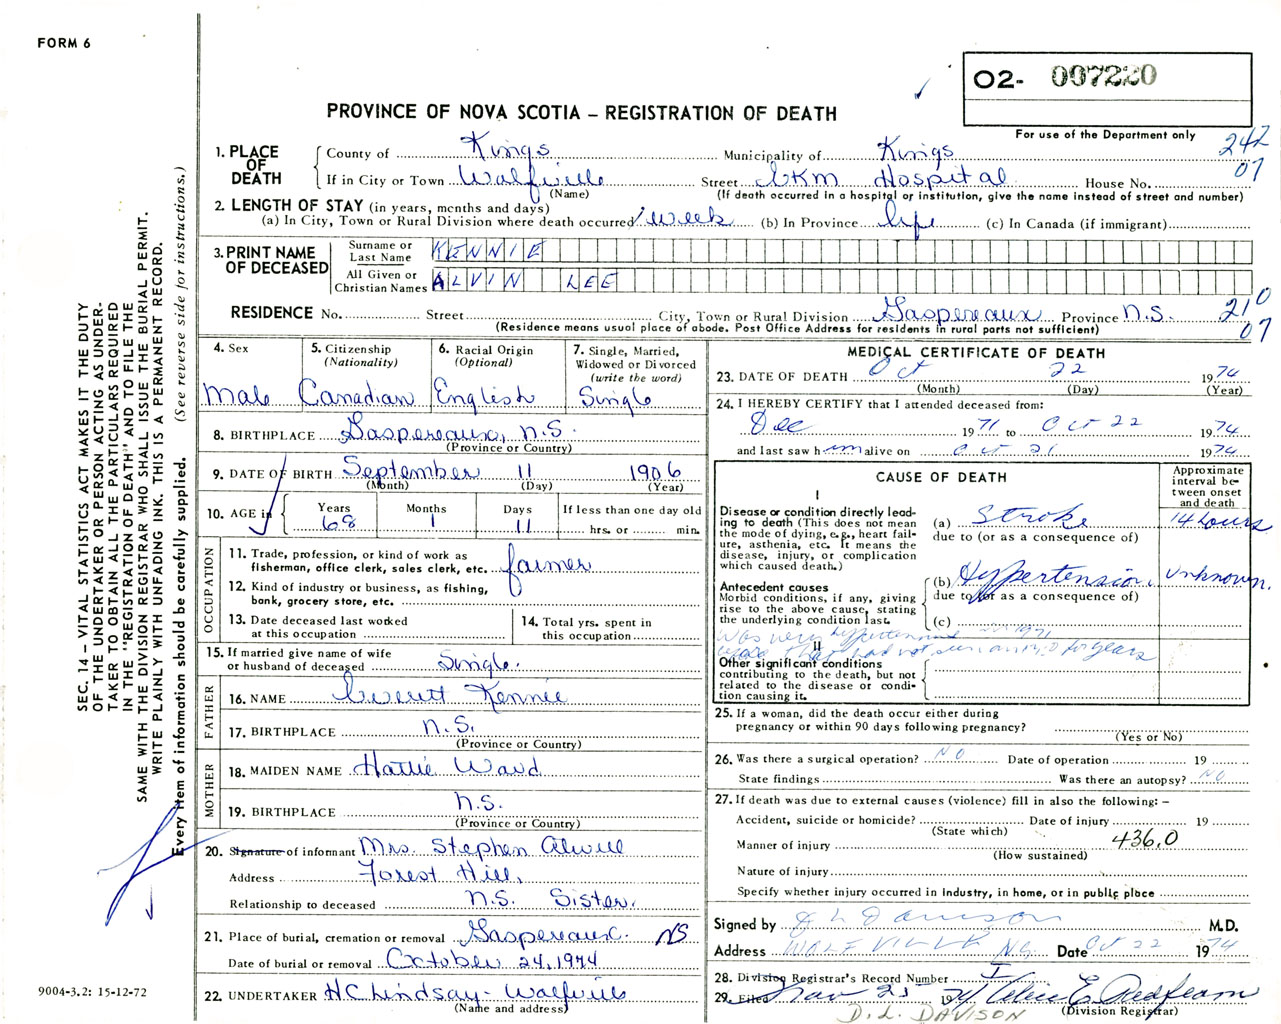 FORM 6
O2- 007220
PROVINCE OF NOVA SCOTIA – REGISTRATION OF DEATH
For use of the Department only
242
07
1. PLACE OF DEATH
County of Kings Municipality of Kings
If in City or Town Wolfville Street EKM Hospital House No.
(Name) (If death occurred in a hospital or institution, give the name instead of street and number)
2. LENGTH OF STAY (in years, months and days)
(a) In City, Town or Rural Division where death occurred 1 week (b) In Province life (c) In Canada (if immigrant)
3. PRINT NAME OF DECEASED
Surname or Last Name KENNIE
All Given or Christian Names ALVIN LEE
RESIDENCE No. Street City, Town or Rural Division Gaspereaux Province N.S. 210
07
(Residence means usual place of abode. Post Office Address for residents in rural parts not sufficient)
4. Sex Male
5. Citizenship (Nationality) Canadian
6. Racial Origin (Optional) English
7. Single, Married, Widowed or Divorced (write the word) Single
8. BIRTHPLACE Gaspereaux, N.S.
(Province or Country)
9. DATE OF BIRTH September 11 1906
(Month) (Day) (Year)
10. AGE in Years 68 Months 1 Days 11 If less than one day old hrs. or min.
OCCUPATION
11. Trade, profession, or kind of work as fisherman, office clerk, sales clerk, etc. farmer
12. Kind of industry or business, as fishing, bank, grocery store, etc.
13. Date deceased last worked at this occupation
14. Total yrs. spent in this occupation
15. If married give name of wife or husband of deceased Single.
FATHER
16. NAME Everett Kennie
17. BIRTHPLACE N.S.
(Province or Country)
MOTHER
18. MAIDEN NAME Hattie Ward
19. BIRTHPLACE N.S.
(Province or Country)
20. Signature of informant Mrs. Stephen Atwell
Address Forest Hill,
Relationship to deceased N.S. Sister.
21. Place of burial, cremation or removal Gaspereaux. NS
Date of burial or removal October 24, 1974
22. UNDERTAKER H C Lindsay - Wolfville
(Name and address)
MEDICAL CERTIFICATE OF DEATH
23. DATE OF DEATH Oct 22 1974
(Month) (Day) (Year)
24. I HEREBY CERTIFY that I attended deceased from:
Dec 1971 to Oct 22 1974
and last saw him alive on Oct 21 1974
CAUSE OF DEATH
Approximate interval between onset and death
I
Disease or condition directly leading to death (This does not mean the mode of dying, e.g., heart failure, asthenia, etc. It means the disease, injury, or complication which caused death.)
(a) Stroke 14 hours
due to (or as a consequence of)
Antecedent causes
Morbid conditions, if any, giving rise to the above cause, stating the underlying condition last.
(b) Hypertension. unknown.
due to (or as a consequence of)
(c)
Was very hypertensive in 1971
that had not seen an M.D for years
II
Other significant conditions contributing to the death, but not related to the disease or condition causing it.
25. If a woman, did the death occur either during pregnancy or within 90 days following pregnancy?
(Yes or No)
26. Was there a surgical operation? NO Date of operation 19
State findings Was there an autopsy? NO
27. If death was due to external causes (violence) fill in also the following: –
Accident, suicide or homicide? Date of injury 19
(State which)
Manner of injury 436.0
(How sustained)
Nature of injury
Specify whether injury occurred in industry, in home, or in public place
Signed by D L Davison M.D.
Address WOLFVILLE NS Date Oct 22 1974
28. Division Registrar's Record Number
29. Filed Nov 25 1974
(Division Registrar)
D. L. DAVISON
SEC. 14 – VITAL STATISTICS ACT MAKES IT THE DUTY
OF THE UNDERTAKER OR PERSON ACTING AS UNDER-
TAKER TO OBTAIN ALL THE PARTICULARS REQUIRED
IN THE "REGISTRATION OF DEATH" AND TO FILE THE
SAME WITH THE DIVISION REGISTRAR WHO SHALL ISSUE THE BURIAL PERMIT.
WRITE PLAINLY WITH UNFADING INK. THIS IS A PERMANENT RECORD.
Every item of information should be carefully supplied. (See reverse side for instructions.)
9004-3.2: 15-12-72